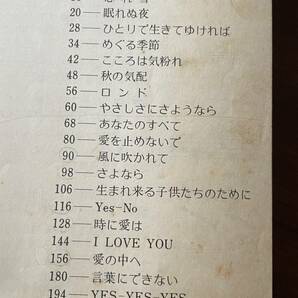 20 — 眠れぬ夜
28 — ひとりで生きてゆければ
34 — めぐる季節
42 — こころは気紛れ
48 — 秋の気配
56 — ロンド
60 — やさしさにさようなら
68 — あなたのすべて
80 — 愛を止めないで
90 — 風に吹かれて
98 — さよなら
106 — 生まれ来る子供たちのために
116 — Yes-No
128 — 時に愛は
144 — I LOVE YOU
156 — 愛の中へ
180 — 言葉にできない
194 — YES-YES-YES